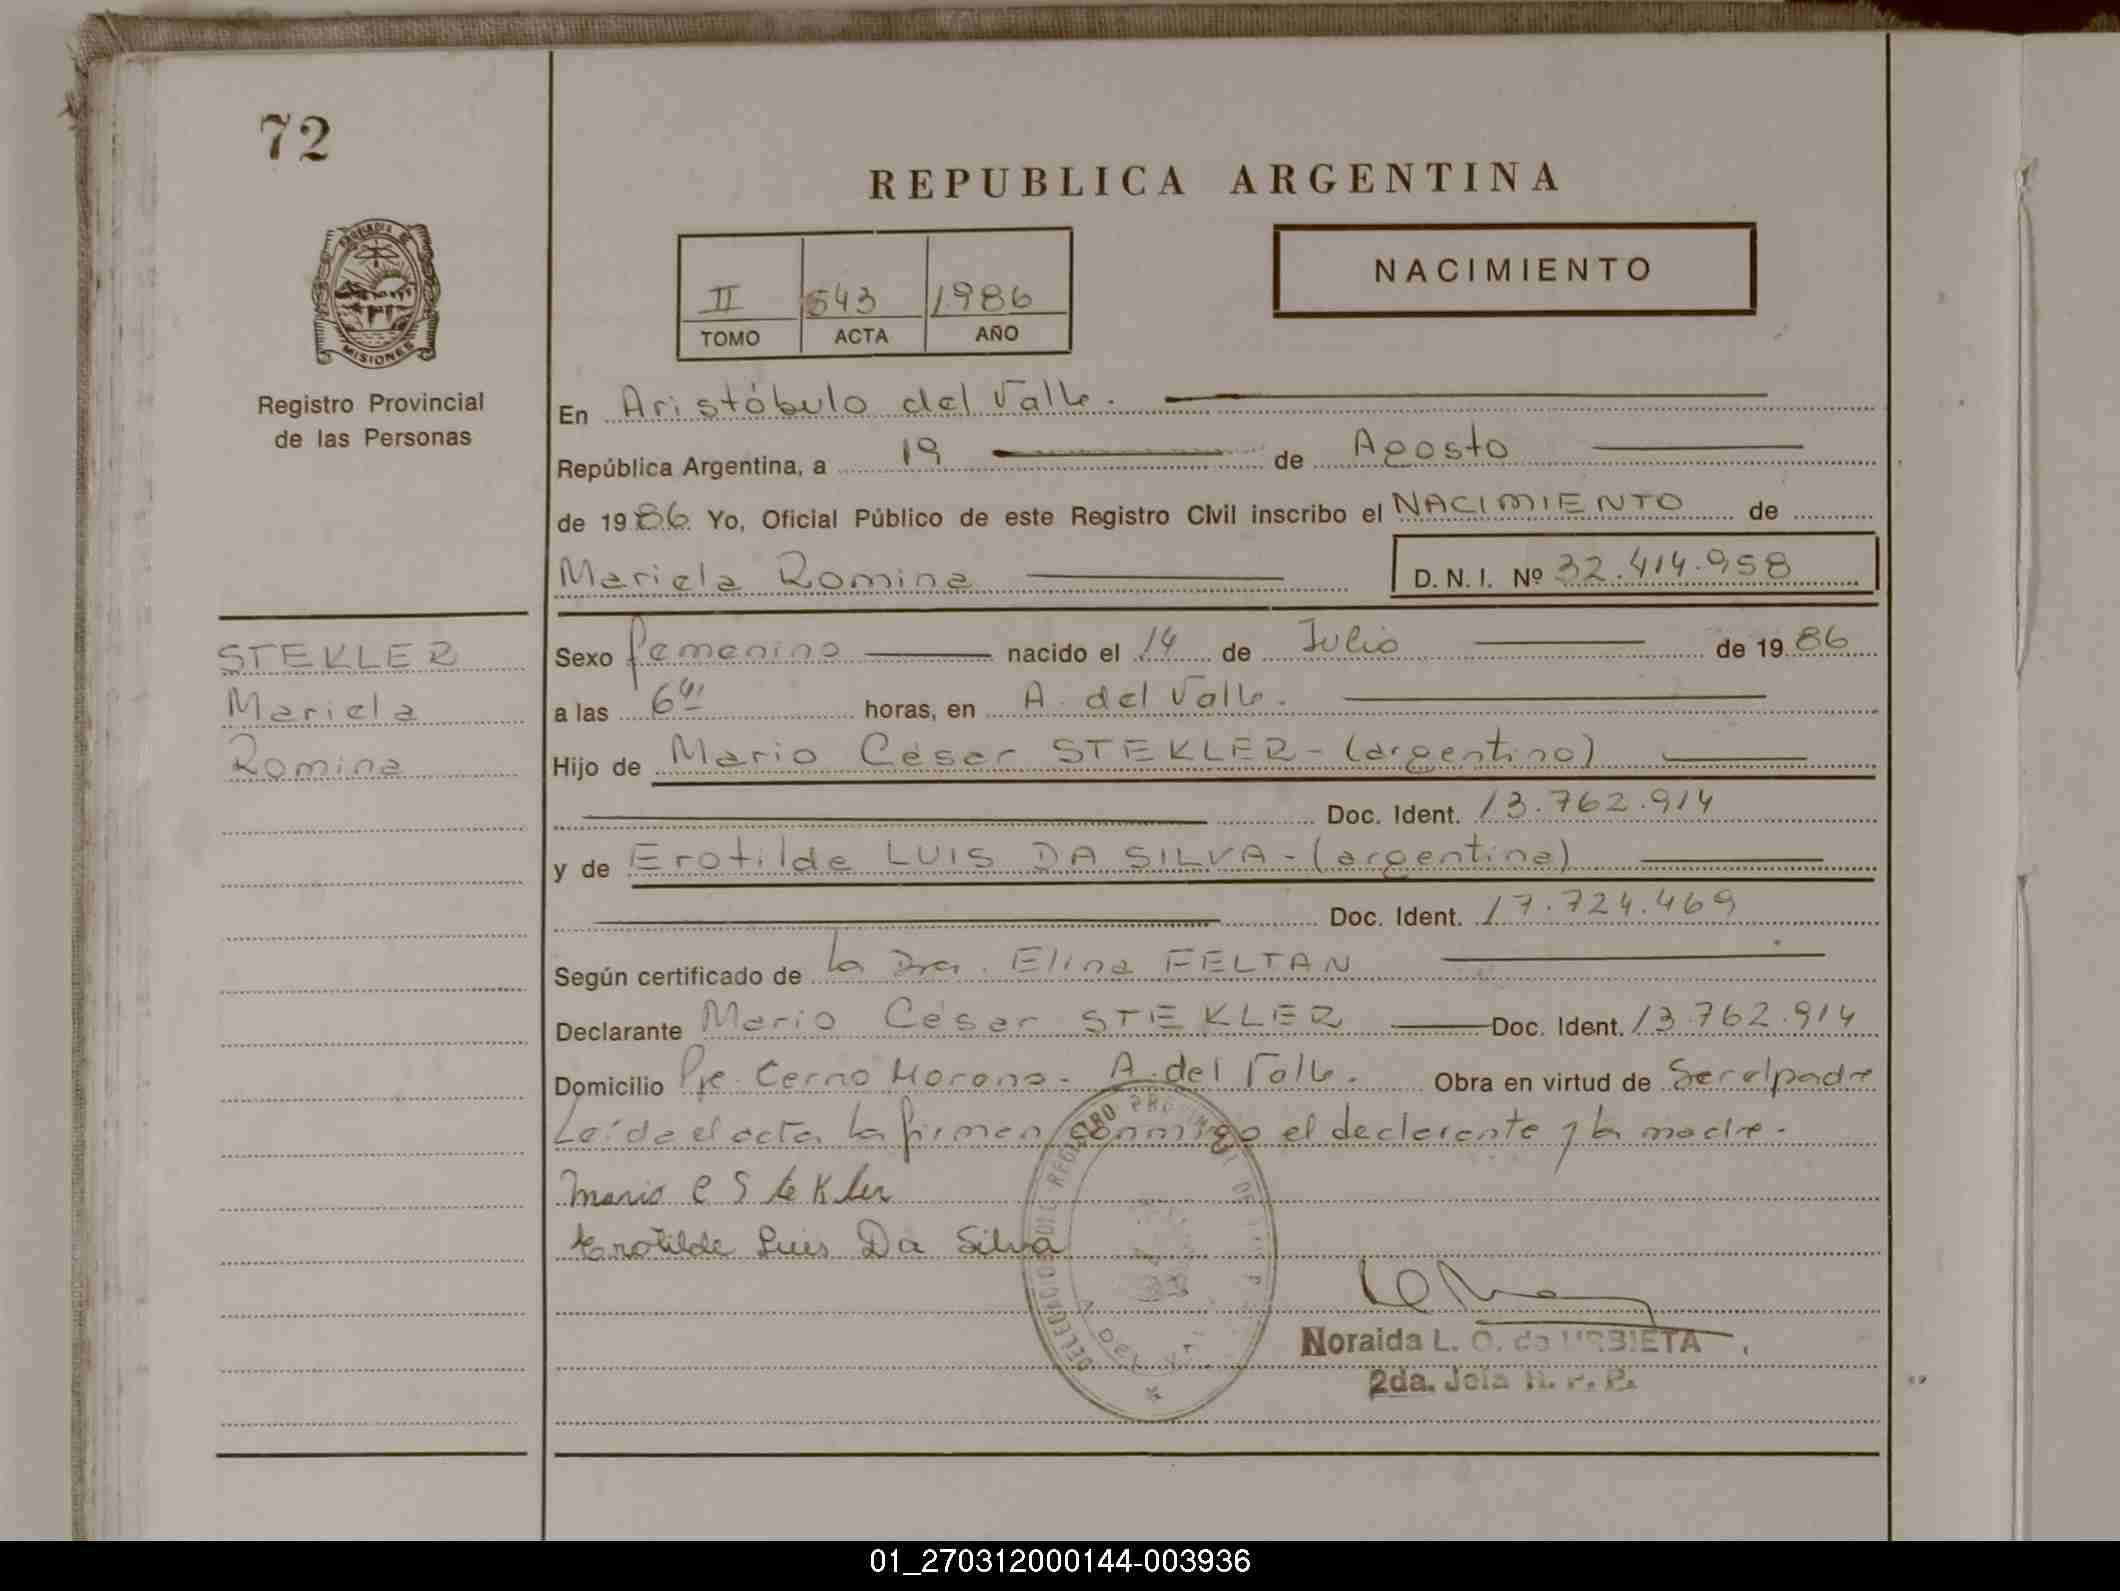 72
REPUBLICA ARGENTINA
NACIMIENTO
II 543 1986
TOMO ACTA AÑO
PROVINCIA DE
MISIONES
Registro Provincial
de las Personas
En Aristóbulo del Valle.
República Argentina, a 19 de Agosto
de 1986 Yo, Oficial Público de este Registro Civil inscribo el NACIMIENTO de
Mariela Romina D. N. I. Nº 32.414.958
STEKLER
Mariela
Romina
Sexo femenino nacido el 14 de Julio de 1986
a las 6 horas, en A. del Valle.
Hijo de Mario César STEKLER - (argentino)
Doc. Ident. 13.762.914
y de Erotilde LUIS DA SILVA - (argentina)
Doc. Ident. 17.724.469
Según certificado de la Dra. Elina FELTAN
Declarante Mario César STEKLER Doc. Ident. 13.762.914
Domicilio A. del Valle. Obra en virtud de Ser el padre
Leída el acta la firman conmigo el declarante y la madre.
Mario C Stekler
Erotilde Luis Da Silva
REGISTRO PROVINCIAL DE
Noraida L. O. de URBIETA
2da. Jefa R. P. P.
01_270312000144-003936